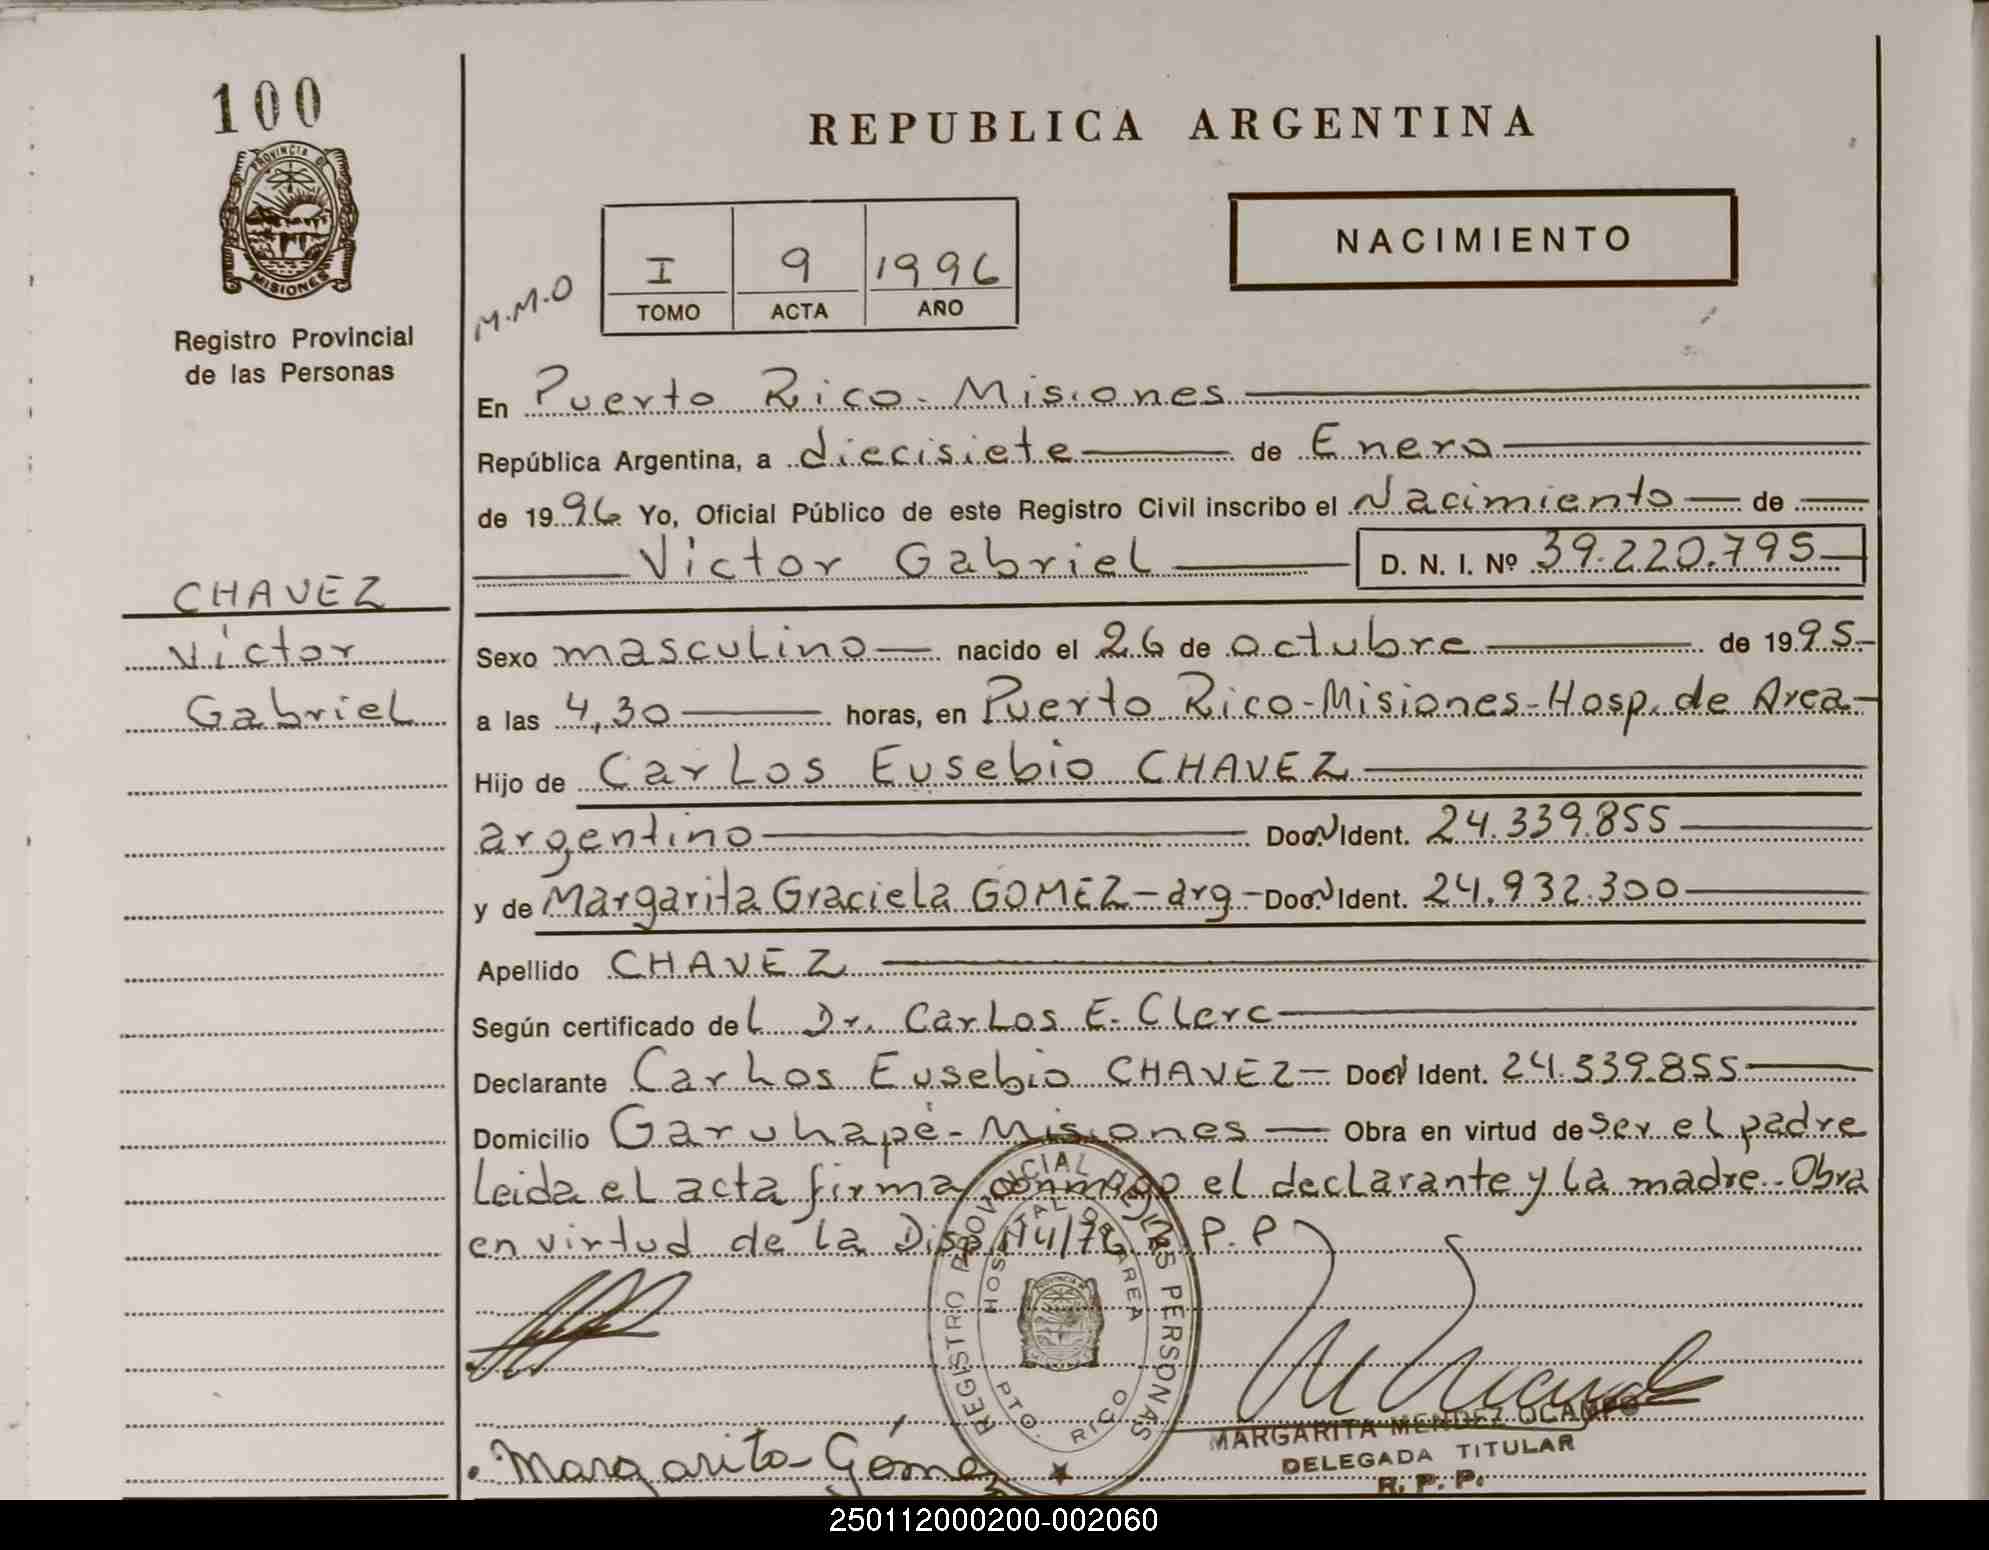 100
PROVINCIA DE
MISIONES
Registro Provincial
de las Personas
CHAVEZ
Víctor
Gabriel
REPUBLICA ARGENTINA
NACIMIENTO
M.M.O
I 9 1996
TOMO ACTA AÑO
En Puerto Rico - Misiones
República Argentina, a diecisiete de Enero
de 1996 Yo, Oficial Público de este Registro Civil inscribo el Nacimiento de
Víctor Gabriel D. N. I. Nº 39.220.795
Sexo masculino nacido el 26 de octubre de 1995
a las 4,30 horas, en Puerto Rico-Misiones-Hosp. de Area-
Hijo de Carlos Eusebio CHAVEZ
argentino Doc. Ident. 24.339.855
y de Margarita Graciela GOMEZ - arg - Doc. Ident. 24.932.300
Apellido CHAVEZ
Según certificado del Dr. Carlos E. Clerc
Declarante Carlos Eusebio CHAVEZ - Doc. Ident. 24.339.855
Domicilio Garuhapé - Misiones - Obra en virtud de ser el padre
Leida el acta firma conmigo el declarante y la madre. Obra
en virtud de la Disp. 114/76 R. P. P
REGISTRO PROVINCIAL DE LAS PERSONAS
HOSPITAL DE AREA
PTO. RICO
Margarita Gómez
MARGARITA MENDEZ OCAMPO
DELEGADA TITULAR
R. P. P.
250112000200-002060